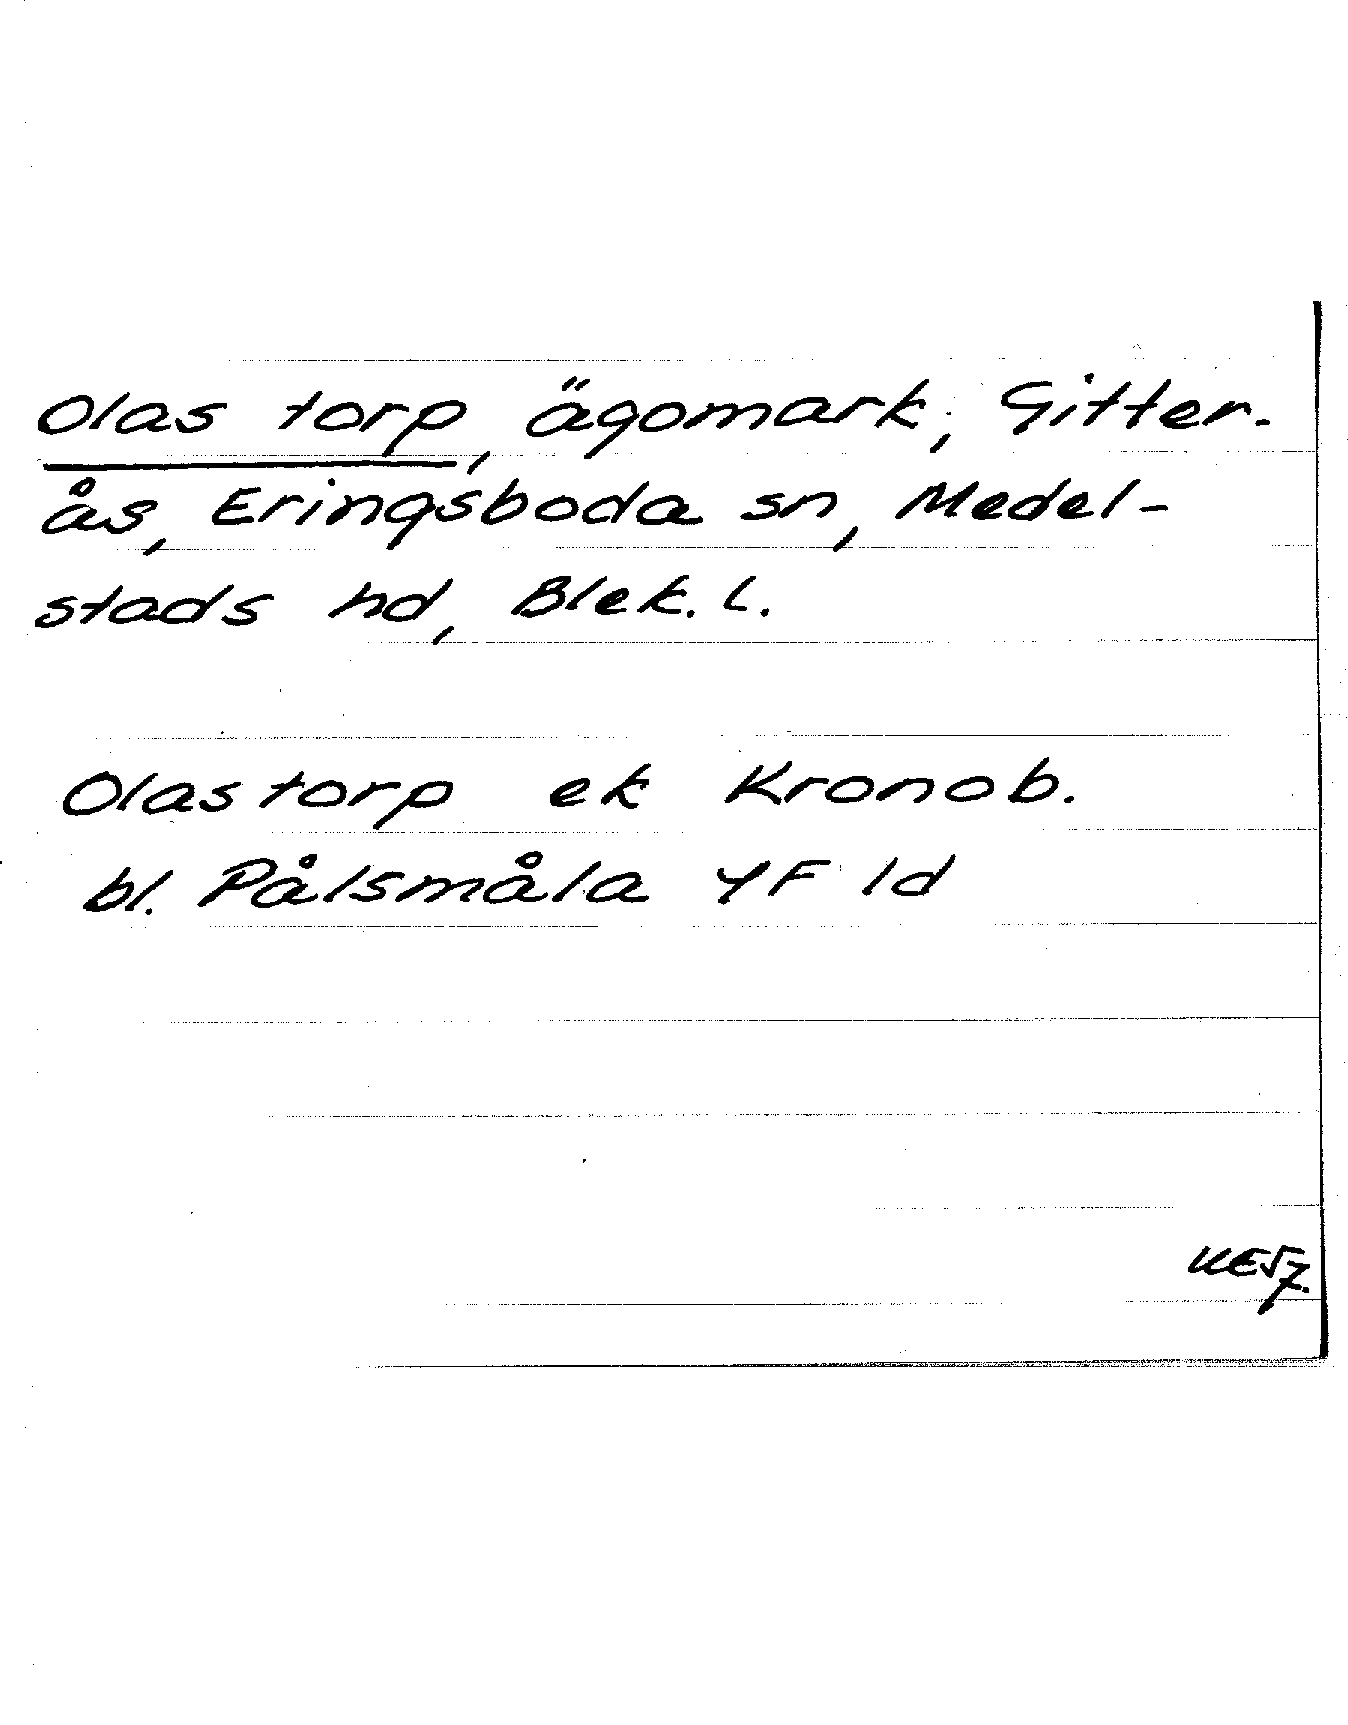 Olas torp, ägomark, Gitter-
ås, Eringsboda sn, Medel-
stads hd, Blek. l.
Olastorp ek Kronob.
bl. Pålsmåla 4F 1d